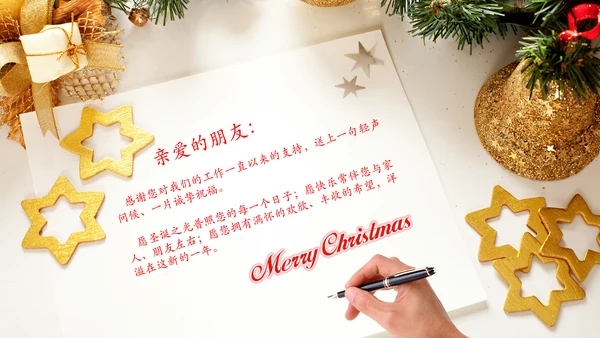 亲爱的朋友：
感谢您对我们的工作一直以来的支持，送上一句轻声
问候、一片诚挚祝福。
愿圣诞之光普照您的每一个日子；愿快乐常伴您与家
人、朋友左右；愿您拥有满怀的欢欣、丰收的希望，洋
溢在这新的一年。
Merry Christmas